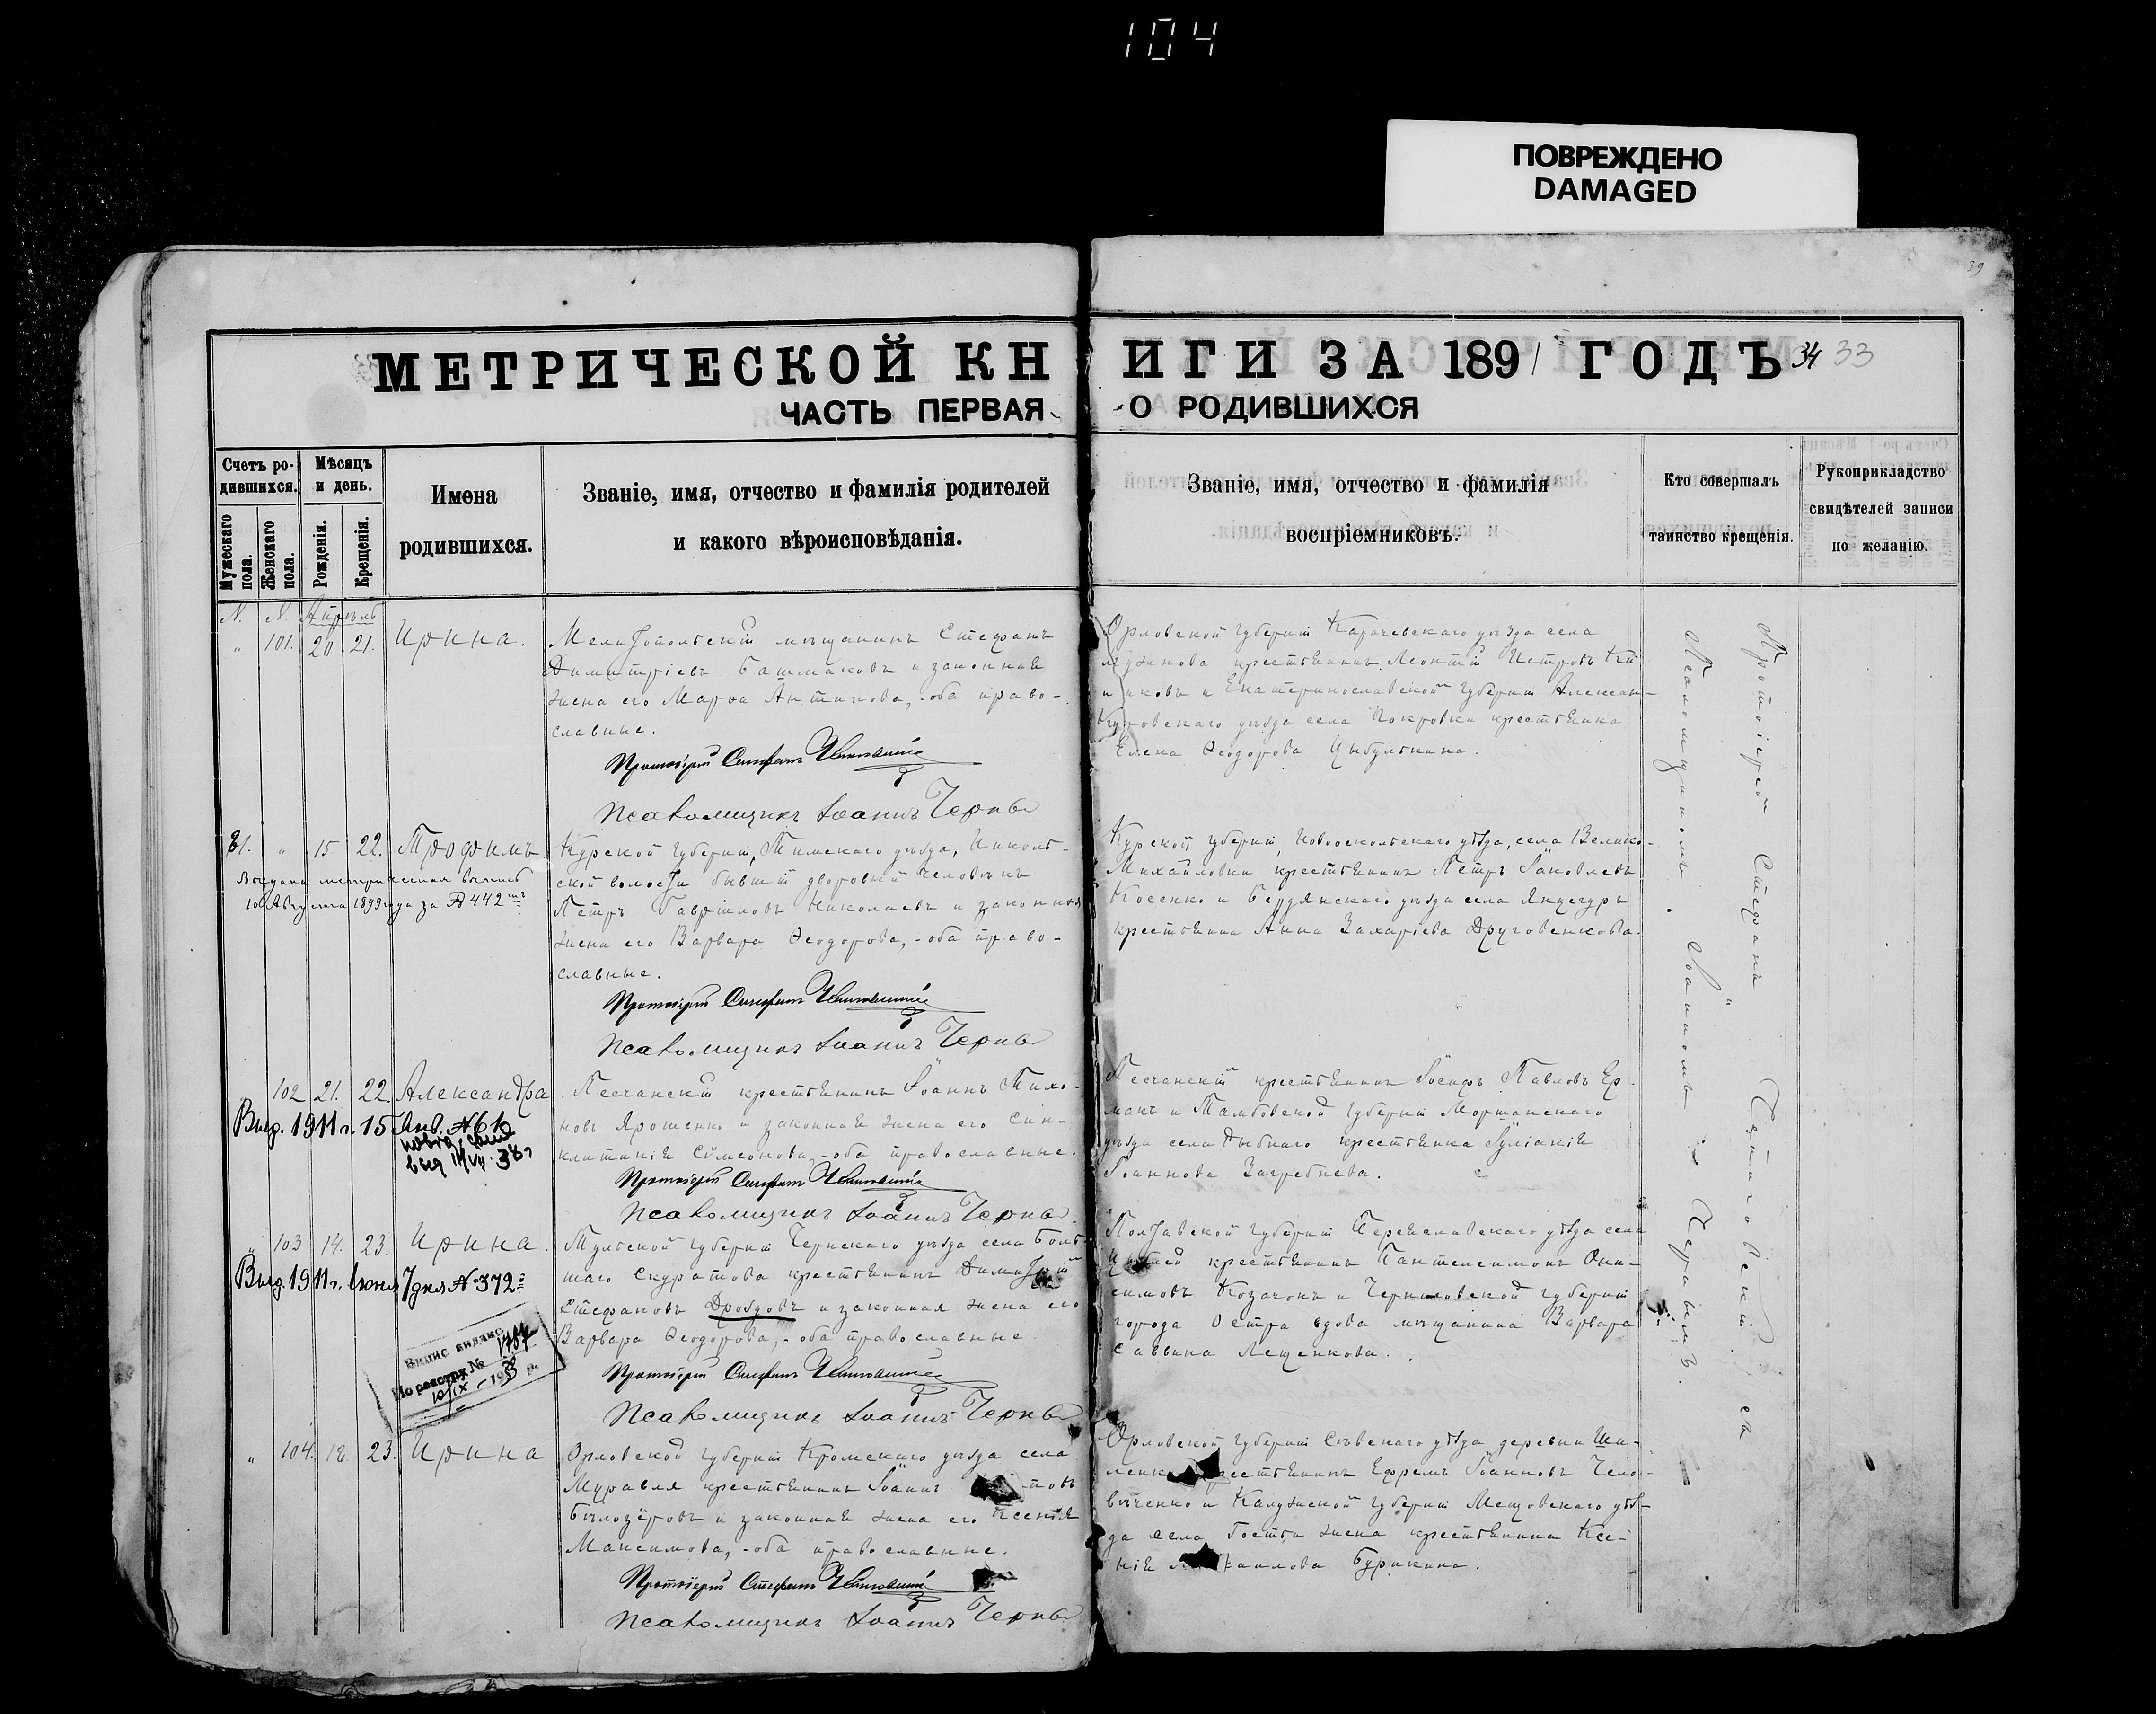 104
ПОВРЕЖДЕНО
DAMAGED
39
МЕТРИЧЕСКОЙ КНИГИ ЗА 1891 ГОДЪ 34 33
ЧАСТЬ ПЕРВАЯ О РОДИВШИХСЯ
Счетъ ро-
дившихся.
Мужескаго пола.
Женскаго пола.
Мѣсяцъ
и день.
Рожденія.
Крещенія.
Имена
родившихся.
Званіе, имя, отчество и фамилія родителей
и какого вѣроисповѣданія.
Званіе, имя, отчество и фамилія
воспріемниковъ.
Кто совершалъ
таинство крещенія.
Рукоприкладство
свидѣтелей записи
по желанію.
N. N. Апрѣль
" 101. 20 21. Ирина.
Мелитопольскій мѣщанинъ Стефанъ
Димитріевъ Башмаковъ и законная
жена его Марѳа Антипова, - оба право-
славные.
Протоіерей Стефанъ
Псаломщикъ Іоаннъ Чернь
Орловской губерніи Карачевскаго уѣзда села
крестьянинъ Леонтій Петровъ
и Екатеринославской губерніи Алексан-
уѣзда села Покровки крестьянка
Елена Ѳеодорова Цыбулькина.
81. " 15 22. Трофимъ
Выдана метрическая выпись
10 Августа 1899 года за № 442
Курской губерніи, Тимскаго уѣзда, Николь-
ской волости бывшій дворовый человѣкъ
Петръ Гавріиловъ Николаевъ и законная
жена его Варвара Ѳеодорова, - оба право-
славные.
Протоіерей Стефанъ
Псаломщикъ Іоаннъ Чернь
Курской губерніи, Новооскольскаго уѣзда, села Велико-
Михайловки крестьянинъ Петръ Іаковлевъ
Косенко и Бердянскаго уѣзда села Янчегуръ
крестьянка Анна Захаріева Друговенкова.
102 21. 22. Александра
Выд. 1911 г. 15 Янв. № 61
Песчанскій крестьянинъ Іоаннъ Тихо-
новъ Ярошенко и законная жена его Син-
клитикія Сѵмеонова, - оба православные.
Протоіерей Стефанъ
Псаломщикъ Іоаннъ Чернь
Песчанскій крестьянинъ Іосифъ Павловъ Ер-
макъ и Тамбовской губерніи Моршанскаго
уѣзда села крестьянка Іуліанія
Іоаннова Загребнева.
" 103 14. 23. Ирина.
Выд. 1911 г. Іюня 7 дня № 372
Випис видано
По реєстру №
10/IX - 1933 р.
Тульской губерніи Чернскаго уѣзда села Боль-
шаго Скуратова крестьянинъ Димитрій
Стефановъ Дроздовъ и законная жена его
Варвара Ѳеодорова, - оба православные.
Протоіерей Стефанъ
Псаломщикъ Іоаннъ Чернь
Полтавской губерніи Переяславскаго уѣзда села
крестьянинъ Пантелеимонъ Они-
симовъ Козачокъ и Черниговской губерніи
города Остра вдова мѣщанина Варвара
Саввина Лещенкова.
" 104. 18. 23. Ирина
Орловской губерніи Кромскаго уѣзда села
Муравля крестьянинъ Іоаннъ
Бѣлозёровъ и законная жена его Ксенія
Максимова, - оба православные.
Протоіерей Стефанъ
Псаломщикъ Іоаннъ Чернь
Орловской губерніи Сѣвскаго уѣзда деревни
крестьянинъ Ефремъ Іоанновъ Чело-
вѣченко и Калужской губерніи Мещовскаго уѣз-
да села жена крестьянина Ксе-
нія Бурикина.
Протоіерей Стефанъ съ
Псаломщикомъ Іоанномъ Чернымъ.